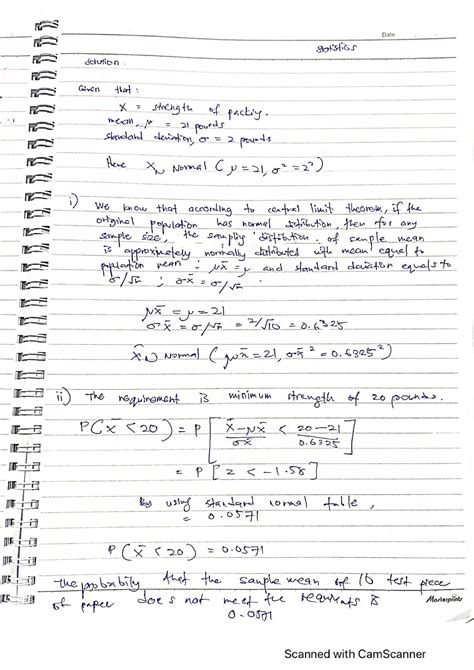 Date
statistics
solution
Given that :
X = strength of packing.
mean, μ = 21 pounds
standard deviation, σ = 2 pounds
Here X ~ Normal (μ = 21, σ² = 2²)
i) We know that according to central limit theorem, if the
original population has normal distribution, then for any
sample size, the sampling distribution of sample mean
is approximately normally distributed with mean equal to
population mean : μx̄ = μ and standard deviation equals to
σ/√n ; σx̄ = σ/√n
μx̄ = μ = 21
σx̄ = σ/√n = 2/√10 = 0.6325
x̄ ~ Normal (μx̄ = 21, σx̄² = 0.6325²)
ii) The requirement is minimum strength of 20 pounds.
P(x̄ < 20) = P [ x̄ - μx̄ / σx̄ < 20 - 21 / 0.6325 ]
= P [ Z < -1.58]
By using standard normal table,
= 0.0571
P (x̄ < 20) = 0.0571
The probability that the sample mean of 10 test piece
of paper does not meet the is
0.0571
Masterprints
Scanned with CamScanner